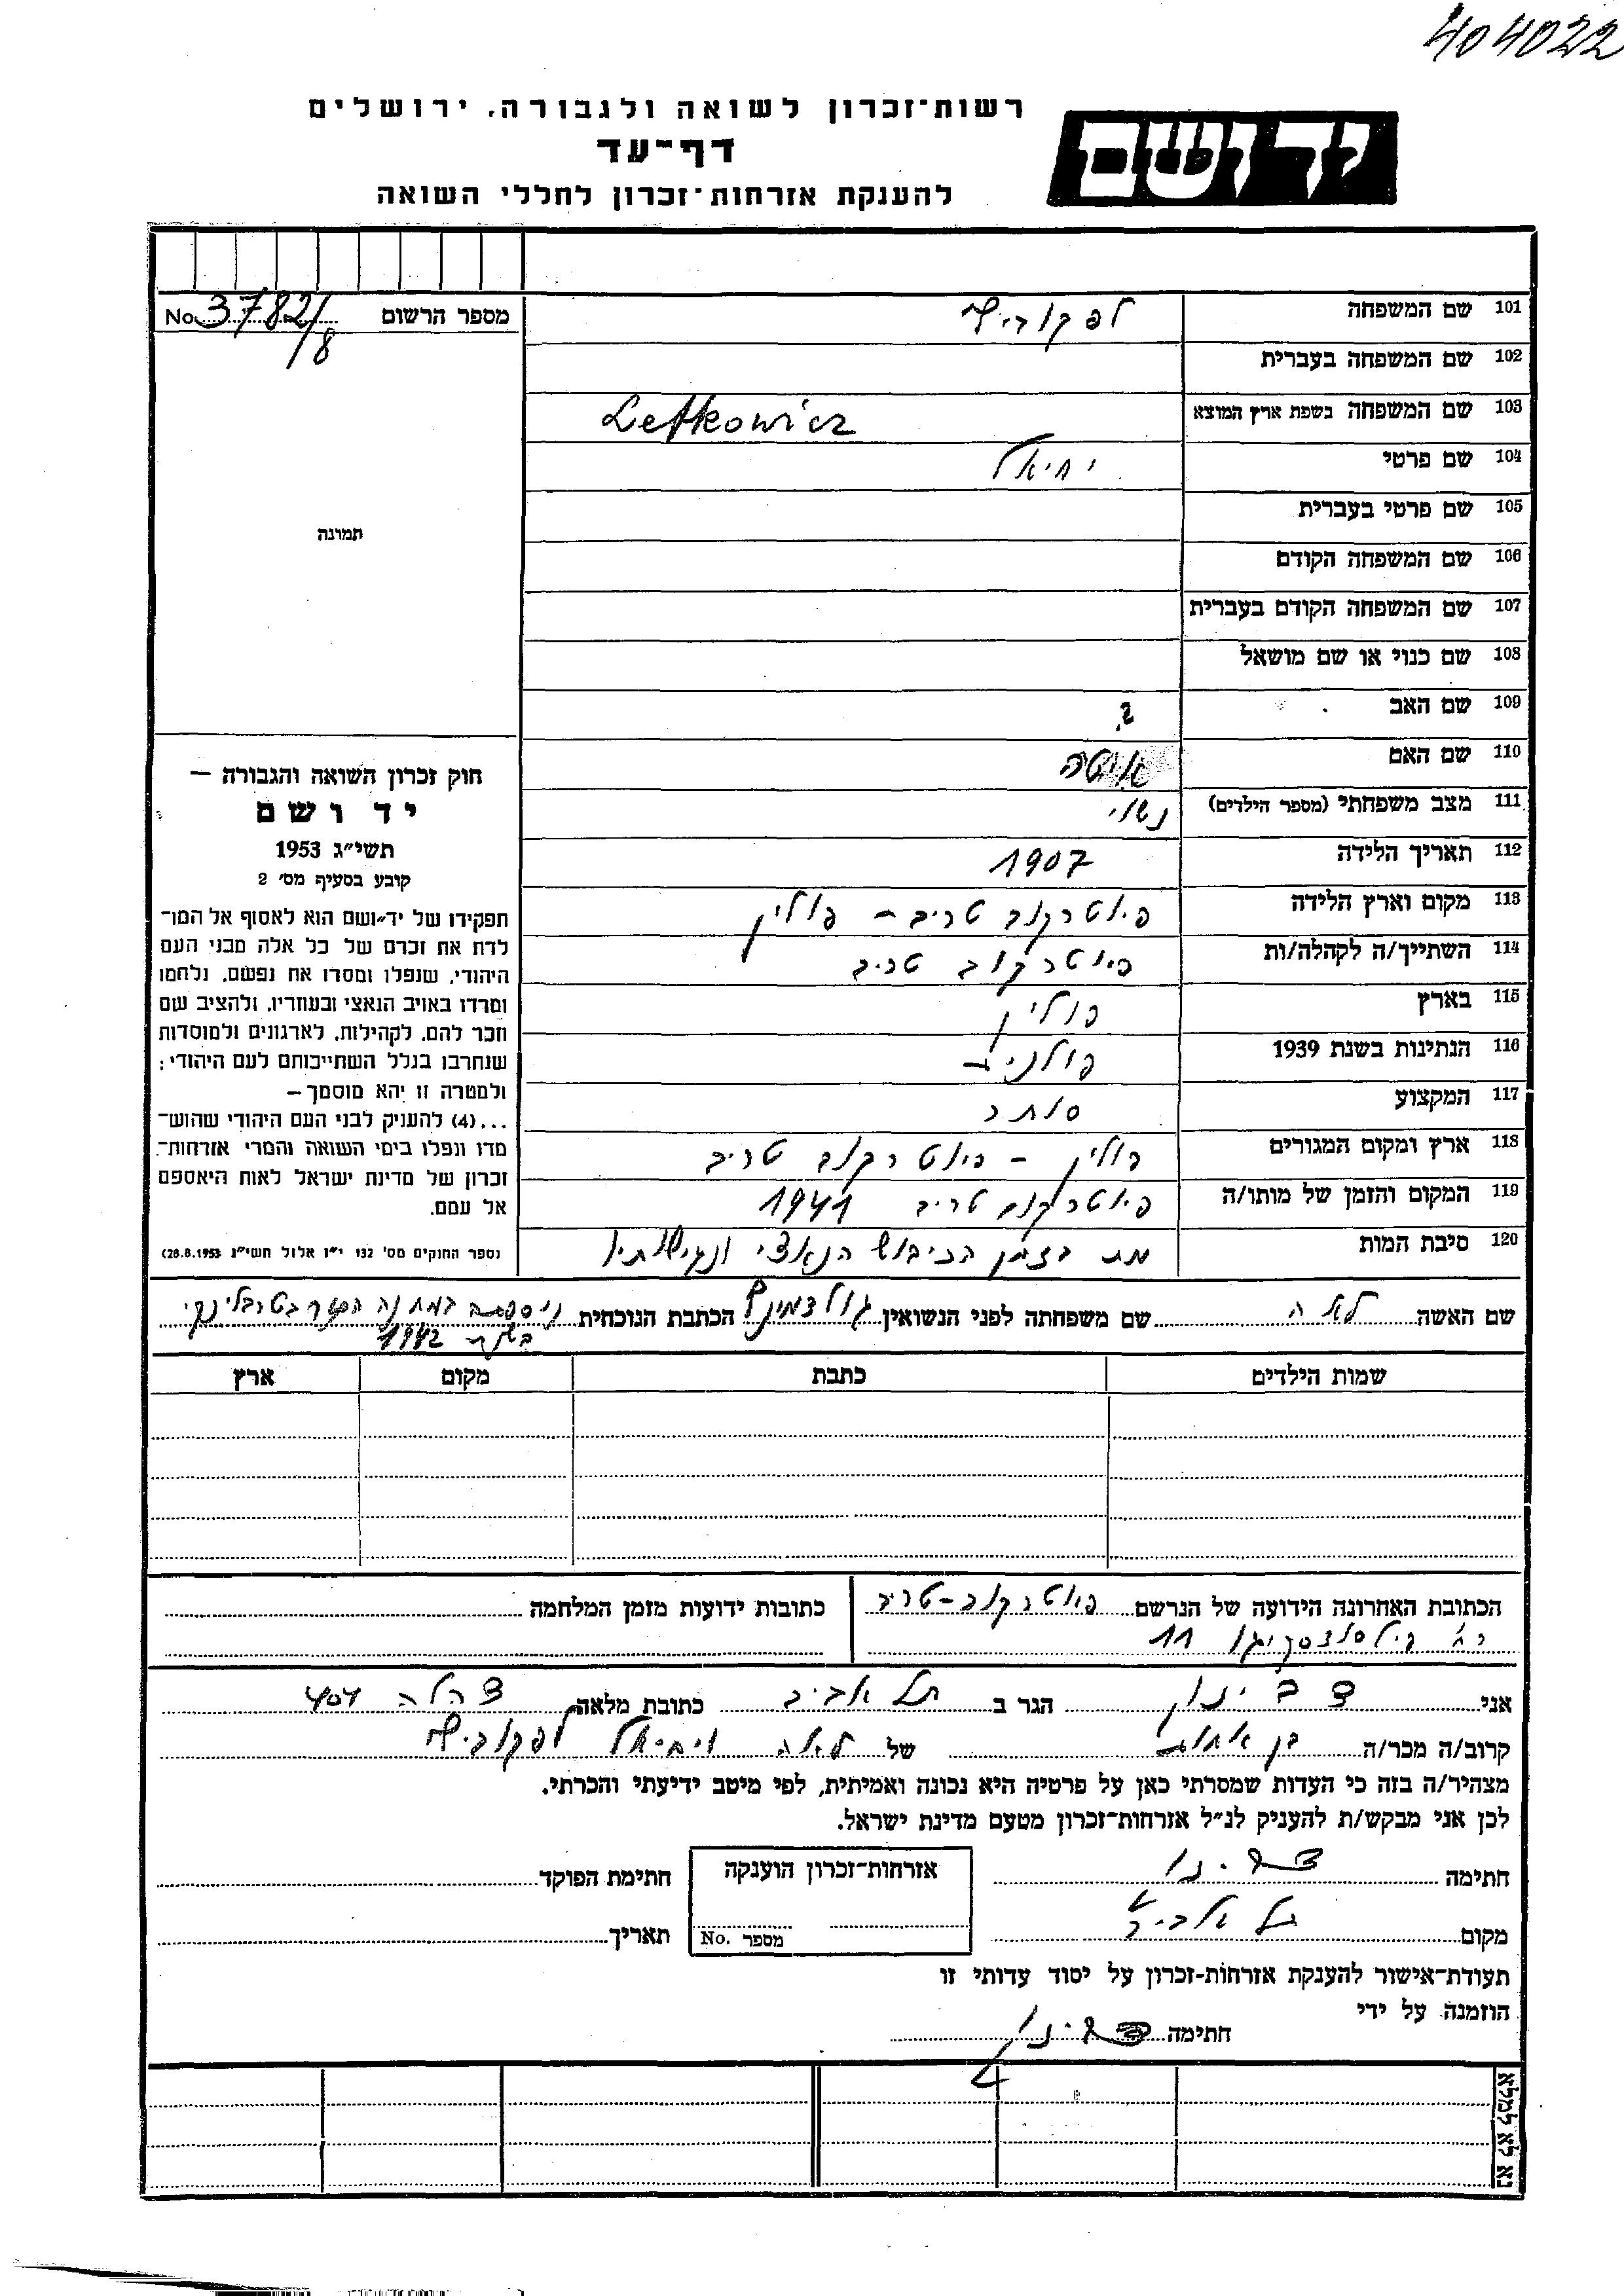 404022
יד ושם
רשות־זכרון לשואה ולגבורה, ירושלים
דף־עד
להענקת אזרחות־זכרון לחללי השואה
מספר הרשום No. 3782/
/8
תמונה
101 שם המשפחה לפקוביץ
102 שם המשפחה בעברית
103 שם המשפחה בשפת ארץ המוצא Lefkowicz
104 שם פרטי יחיאל
105 שם פרטי בעברית
106 שם המשפחה הקודם
107 שם המשפחה הקודם בעברית
108 שם כנוי או שם מושאל
109 שם האב ?
110 שם האם איטה
111 מצב משפחתי (מספר הילדים) נשוי
112 תאריך הלידה 1907
113 מקום וארץ הלידה פיוטרקוב טריב – פולין
114 השתייך/ה לקהלה/ות פיוטרקוב טריב
115 בארץ פולין
116 הנתינות בשנת 1939 פולנית
117 המקצוע סוחר
118 ארץ ומקום המגורים פולין – פיוטרקוב טריב
119 המקום והזמן של מותו/ה פיוטרקוב טריב 1941
120 סיבת המות מת בזמן הכיבוש הנאצי ונגישותיו
חוק זכרון השואה והגבורה —
יד ושם
תשי״ג 1953
קובע בסעיף מס׳ 2
תפקידו של יד־ושם הוא לאסוף אל המו־
לדת את זכרם של כל אלה מבני העם
היהודי, שנפלו ומסרו את נפשם, נלחמו
ומרדו באויב הנאצי ובעוזריו, ולהציב שם
וזכר להם, לקהילות, לארגונים ולמוסדות
שנחרבו בגלל השתייכותם לעם היהודי;
ולמטרה זו יהא מוסמך—
...(4) להעניק לבני העם היהודי שהוש־
מדו ונפלו בימי השואה והמרי אזרחות־
זכרון של מדינת ישראל לאות היאספם
אל עמם.
(ספר החוקים מס׳ 132 י״ז אלול תשי״ג 28.8.1953)
שם האשה לאה שם משפחתה לפני הנשואין גולדמינץ הכתבת הנוכחית ניספתה במחנה הסגר בטרבלינקי
בשנת 1942
שמות הילדים כתבת מקום ארץ
הכתובת האחרונה הידועה של הנרשם פיוטרקוב-טריב
רח׳ פילסודסקיגו 11
כתובות ידועות מזמן המלחמה
אני צבי ינון הגר ב תל אביב כתובת מלאה צהלה 404
קרוב/ה מכר/ה בן אחות של לאה ויחיאל לפקוביץ
מצהיר/ה בזה כי העדות שמסרתי כאן על פרטיה היא נכונה ואמיתית, לפי מיטב ידיעתי והכרתי.
לכן אני מבקש/ת להעניק לנ״ל אזרחות־זכרון מטעם מדינת ישראל.
חתימה צבי ינון
מקום תל אביב
אזרחות־זכרון הוענקה
מספר No.
חתימת הפוקד
תאריך
תעודת־אישור להענקת אזרחות-זכרון על יסוד עדותי זו
הוזמנה על ידי
חתימה צבי ינון
נא לא למלא